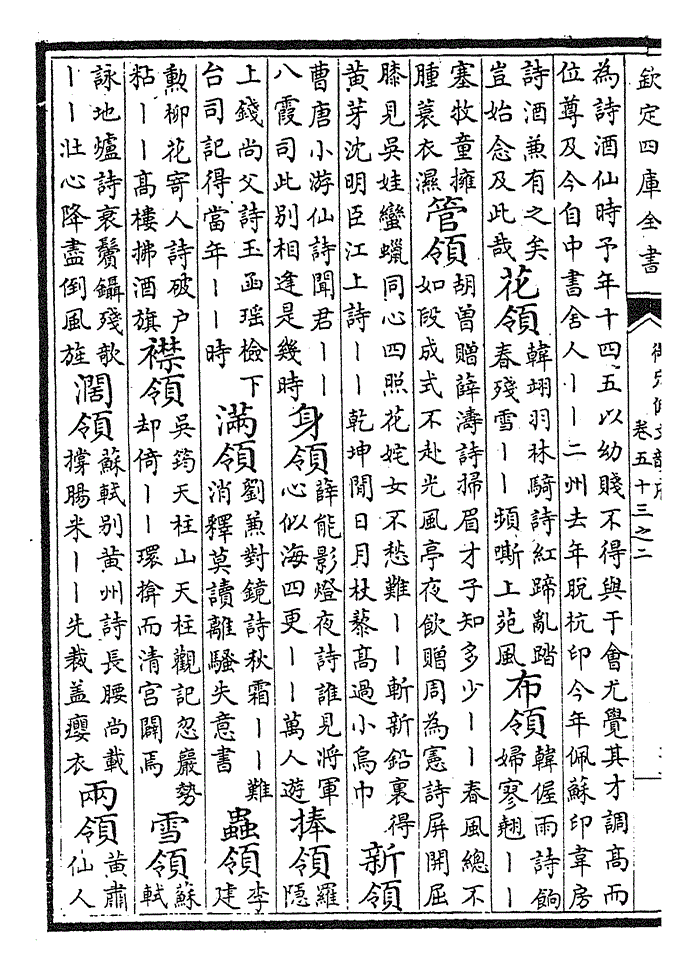 欽定四庫全書
御定佩文韻府
卷五十三之二
為詩酒仙時予年十四五以幼賤不得與于會尤覺其才調高而
位尊及今自中書舍人丨丨二州去年脱杭印今年佩蘇印韋房
詩酒兼有之矣
豈始念及此哉
花領
韓翃羽林騎詩紅蹄亂踏
春殘雪丨丨頻嘶上苑風
布領
韓偓雨詩餉
婦寥翹丨丨
塞牧童擁
腫蓑衣濕
管領
胡曾贈薛濤詩掃眉才子知多少丨丨春風總不
如段成式不赴光風亭夜飲贈周為憲詩屏開屈
膝見吳娃蠻蠟同心四照花姹女不愁難丨丨斬新鉛裏得
黄芽沈明臣江上詩丨丨乾坤閒日月杖藜高過小烏巾
新領
曹唐小游仙詩聞君丨丨
八霞司此别相逢是幾時
身領
薛能影燈夜詩誰見將軍
心似海四更丨丨萬人遊
捧領
羅
隱
上錢尚父詩玉函瑶檢下
台司記得當年丨丨時
滿領
劉兼對鏡詩秋霜丨丨難
消釋莫讀離騷失意書
蟲領
李
建
勲柳花寄人詩破户
粘丨丨高樓拂酒旗
襟領
吳筠天柱山天柱觀記忽巖勢
却倚丨丨環揜而清宫闢焉
雪領
蘇
軾
詠地爐詩衰鬢鑷殘欹
丨丨壯心降盡倒風旌
濶領
蘇軾别黄州詩長腰尚載
撐腸米丨丨先裁盖癭衣
兩領
黄肅
仙人